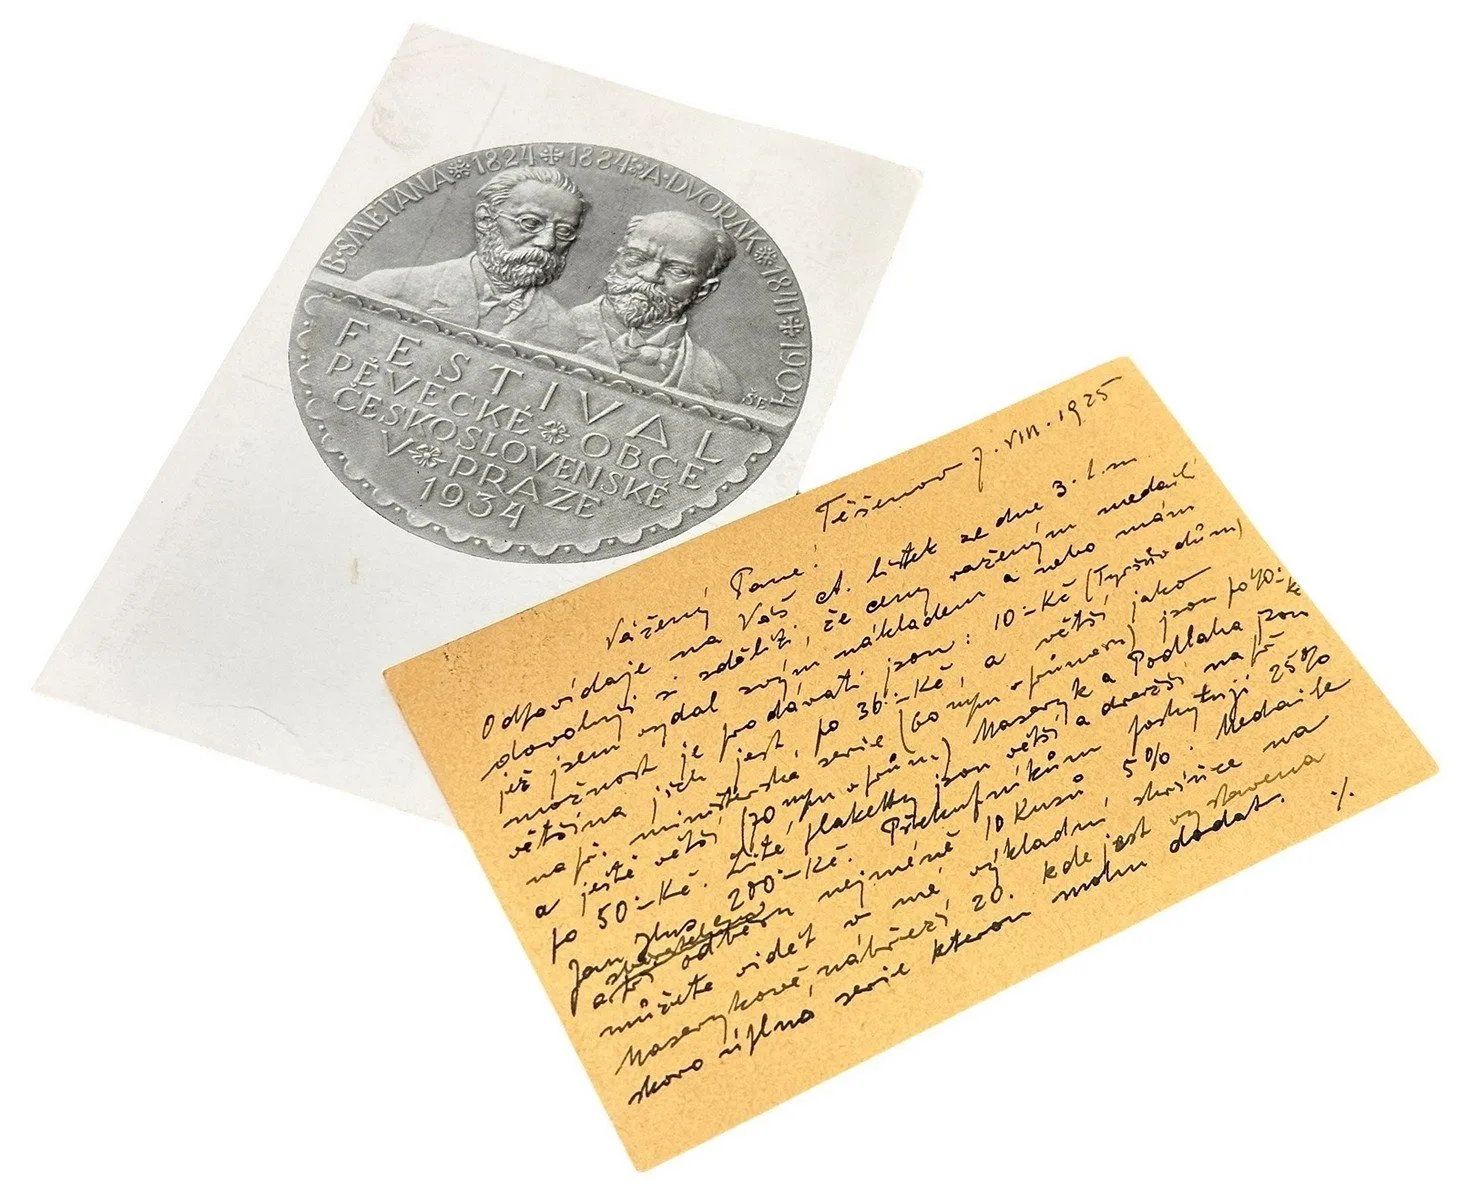 B·SMETANA * 1824 * 1884 * A·DVOŘÁK * 1841 * 1904
FESTIVAL
PĚVECKÉ * OBCE
ČESKOSLOVENSKÉ
V * PRAZE
1934
Těšenov 7. VIII. 1925
Vážený Pane!
Odpovídaje na Váš ct. lístek ze dne 3. t.m.
dovoluji si sděliti, že ceny raženým medailí
jež jsem vydal svým nákladem a nebo mám
možnost je prodávati jsou: 10·-Kč (Tyršův dům)
většina jich jest po 36·-Kč, a větší jako
např. ministerská serie (60 m/m v průměru) jsou po 40·-Kč
a ještě větší (70 m/m v prům.) Masaryk a Podlaha jsou
po 50·-Kč. Lité plakety jsou větší a dražší např
Jan Hus 200·-Kč. Překupníkům poskytuji 25%
a při odběru nejméně 10 Kusů 5%. Medaile
můžete vidět v mé výkladní skřínce na
Masarykově nábřeží 20. kde jest vystavena
skoro úplná serie kterou mohu dodat. ·/.